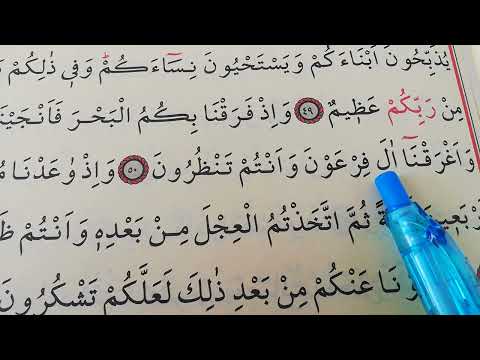 يُذَبِّحُونَ اَبْنَٓاءَكُمْ وَيَسْتَحْيُونَ نِسَٓاءَكُمْۜ وَفٖي ذٰلِكُمْ
مِنْ رَبِّكُمْ عَظٖيمٌ ﴿٤٩﴾ وَاِذْ فَرَقْنَا بِكُمُ الْبَحْرَ فَاَنْجَيْنَا
وَاَغْرَقْنَٓا اٰلَ فِرْعَوْنَ وَاَنْتُمْ تَنْظُرُونَ ﴿٥٠﴾ وَاِذْ وٰعَدْنَا
ثُمَّ اتَّخَذْتُمُ الْعِجْلَ مِنْ بَعْدِهٖ وَاَنْتُمْ
عَنْكُمْ مِنْ بَعْدِ ذٰلِكَ لَعَلَّكُمْ تَشْكُرُونَ